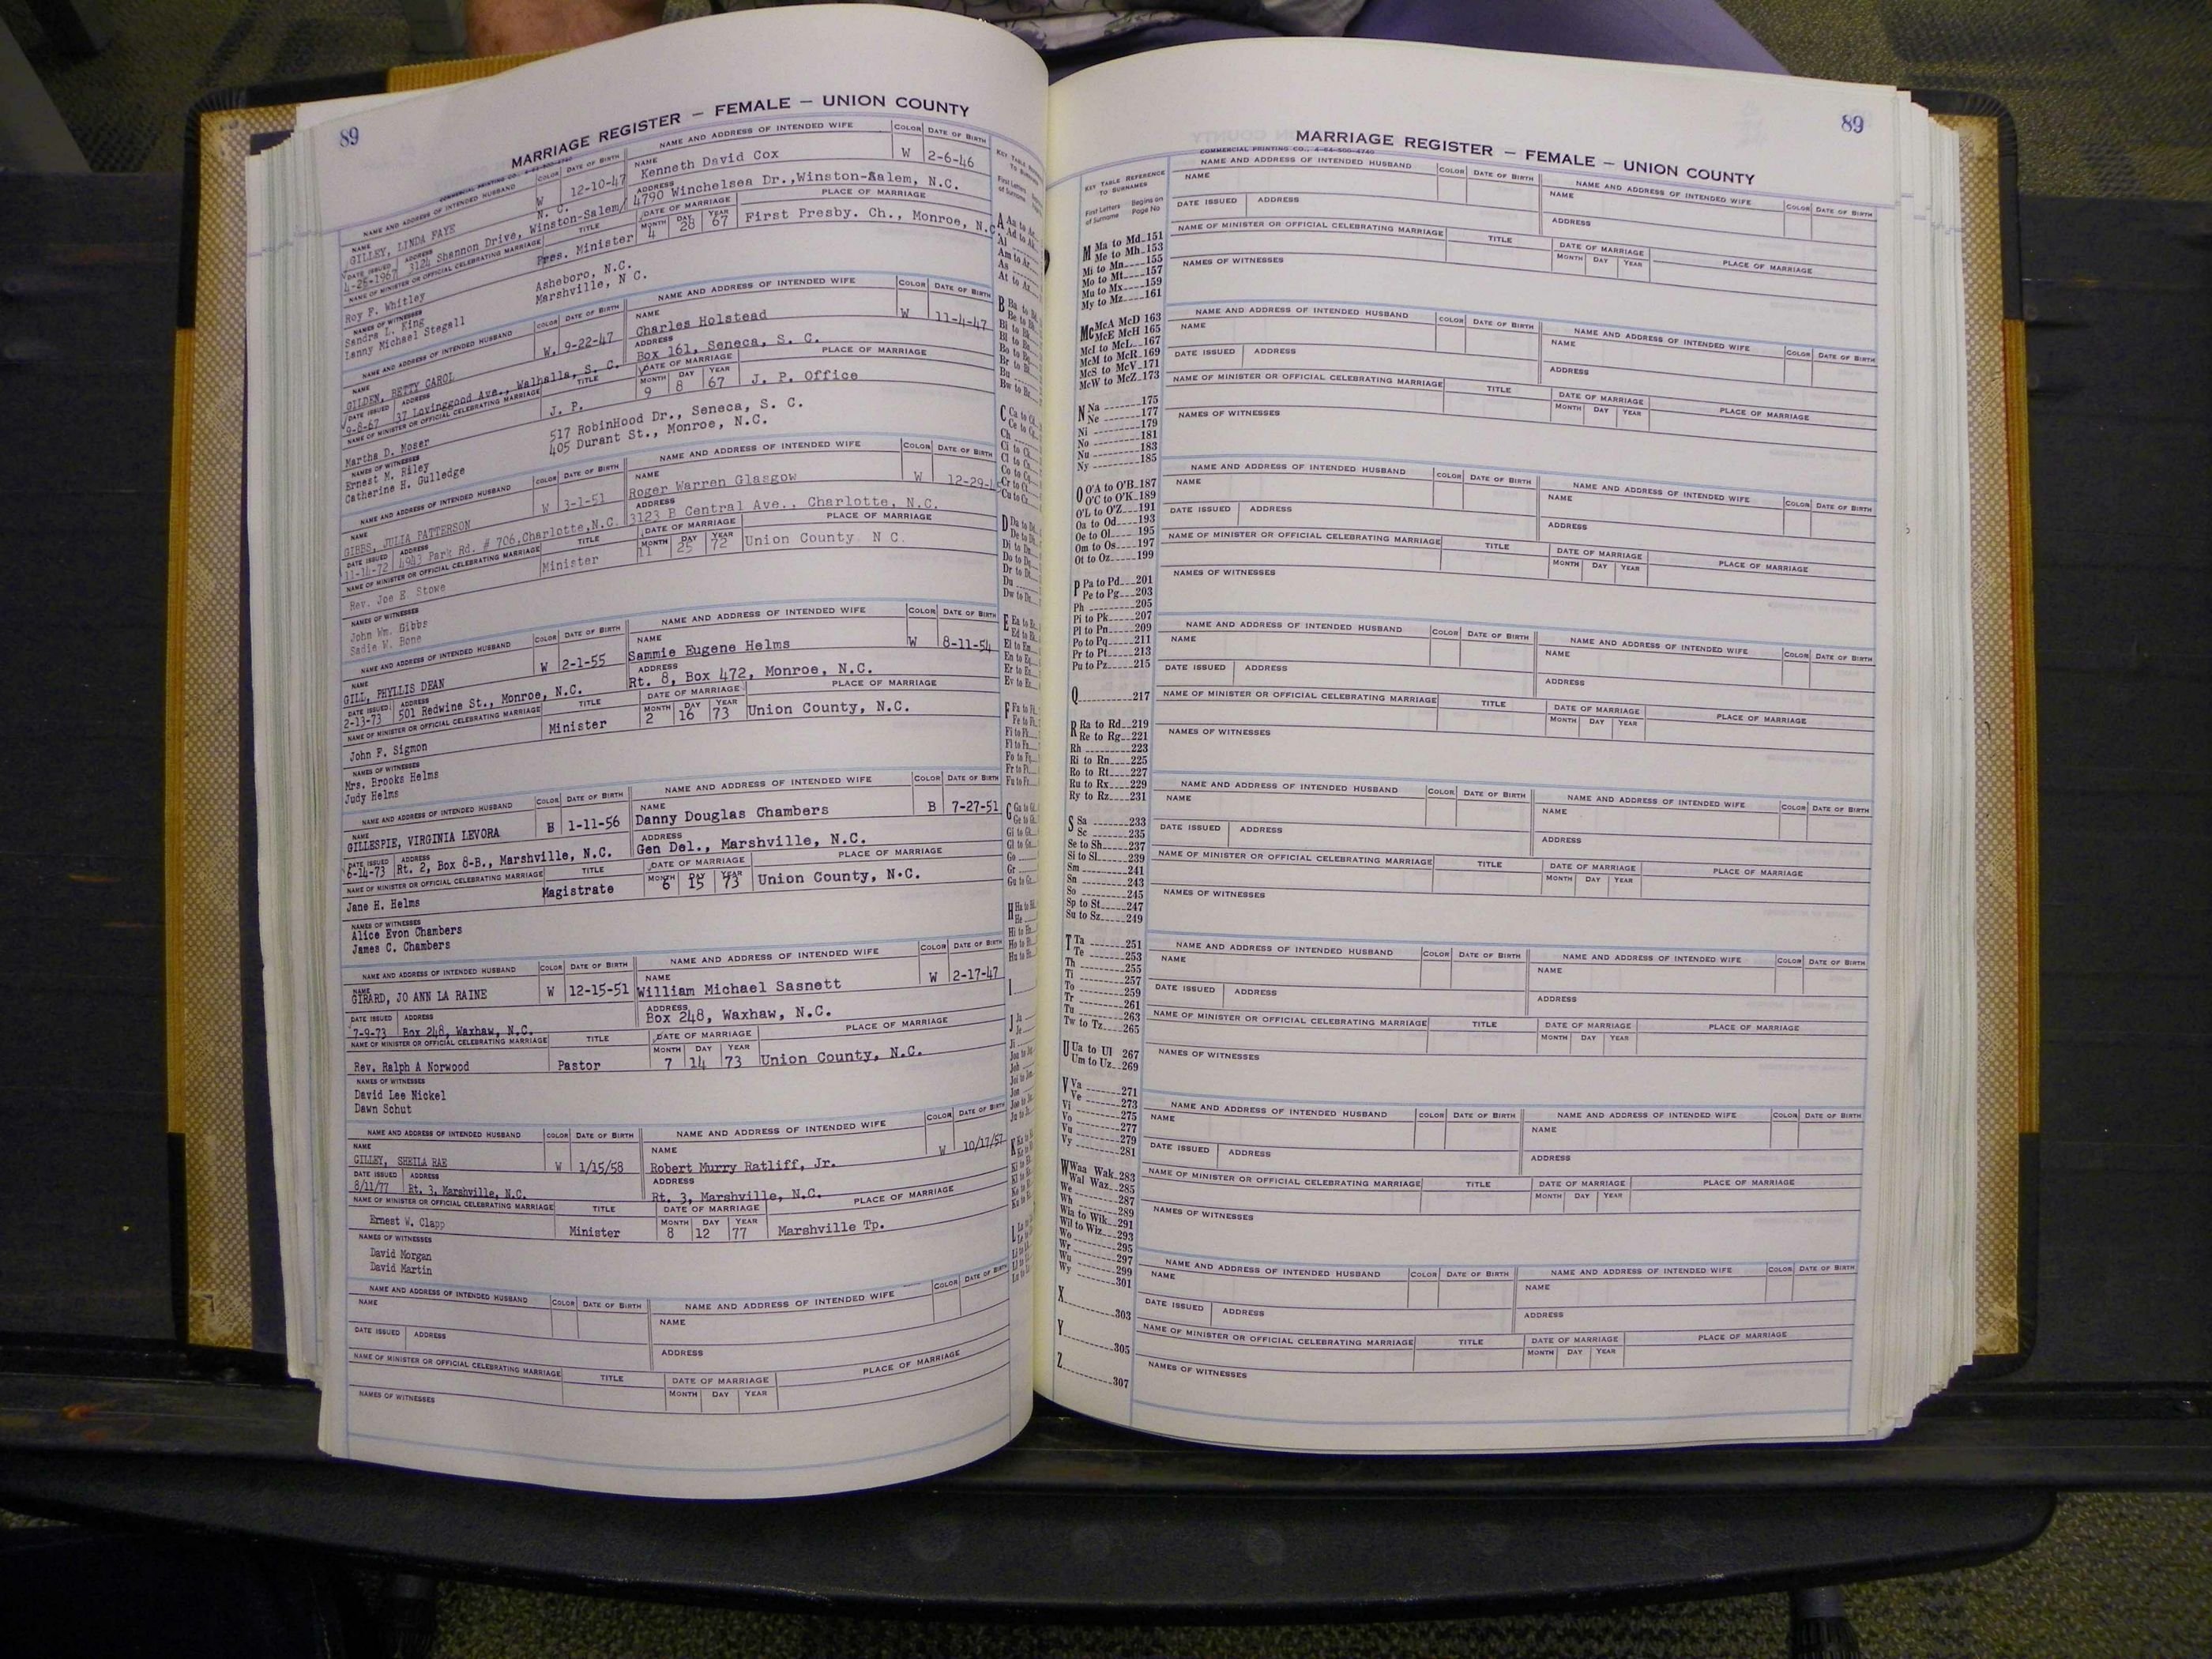 89
MARRIAGE REGISTER — FEMALE — UNION COUNTY
COMMERCIAL PRINTING CO.,
NAME AND ADDRESS OF INTENDED HUSBAND COLOR DATE OF BIRTH NAME AND ADDRESS OF INTENDED WIFE COLOR DATE OF BIRTH
NAME GILLEY, LINDA FAYE W 12-10-47 NAME Kenneth David Cox W 2-6-46
N. C.
DATE ISSUED 4-26-1967 ADDRESS 3124 Shannon Drive, Winston-Salem/ ADDRESS 4790 Winchelsea Dr.,Winston-Salem, N.C.
NAME OF MINISTER OR OFFICIAL CELEBRATING MARRIAGE TITLE DATE OF MARRIAGE PLACE OF MARRIAGE
Roy F. Whitley Pres. Minister MONTH 4 DAY 28 YEAR 67 First Presby. Ch., Monroe, N.C
NAMES OF WITNESSES
Sandra L. King Asheboro, N.C.
Lanny Michael Stegall Marshville, N C.
NAME AND ADDRESS OF INTENDED HUSBAND COLOR DATE OF BIRTH NAME AND ADDRESS OF INTENDED WIFE COLOR DATE OF BIRTH
NAME GILDEN, BETTY CAROL W. 9-22-47 NAME Charles Holstead W 11-4-47
DATE ISSUED 9-8-67 ADDRESS 37 Lovinggood Ave., Walhalla, S. C. ADDRESS Box 161, Seneca, S. C.
NAME OF MINISTER OR OFFICIAL CELEBRATING MARRIAGE TITLE DATE OF MARRIAGE PLACE OF MARRIAGE
Martha D. Moser J. P. MONTH 9 DAY 8 YEAR 67 J. P. Office
NAMES OF WITNESSES
Ernest M. Riley 517 RobinHood Dr., Seneca, S. C.
Catherine H. Gulledge 405 Durant St., Monroe, N.C.
NAME AND ADDRESS OF INTENDED HUSBAND COLOR DATE OF BIRTH NAME AND ADDRESS OF INTENDED WIFE COLOR DATE OF BIRTH
NAME GIBBS, JULIA PATTERSON W 3-1-51 NAME Roger Warren Glasgow W 12-29-
DATE ISSUED 11-14-72 ADDRESS 4943 Park Rd. # 706,Charlotte,N.C. ADDRESS 3123 B Central Ave., Charlotte, N.C.
NAME OF MINISTER OR OFFICIAL CELEBRATING MARRIAGE TITLE DATE OF MARRIAGE PLACE OF MARRIAGE
Rev. Joe E. Stowe Minister MONTH 11 DAY 25 YEAR 72 Union County N C.
NAMES OF WITNESSES
John Wm. Gibbs
Sadie W. Bone
NAME AND ADDRESS OF INTENDED HUSBAND COLOR DATE OF BIRTH NAME AND ADDRESS OF INTENDED WIFE COLOR DATE OF BIRTH
NAME GILL, PHYLLIS DEAN W 2-1-55 NAME Sammie Eugene Helms W 8-11-54
DATE ISSUED 2-13-73 ADDRESS 501 Redwine St., Monroe, N.C. ADDRESS Rt. 8, Box 472, Monroe, N.C.
NAME OF MINISTER OR OFFICIAL CELEBRATING MARRIAGE TITLE DATE OF MARRIAGE PLACE OF MARRIAGE
John F. Sigmon Minister MONTH 2 DAY 16 YEAR 73 Union County, N.C.
NAMES OF WITNESSES
Mrs. Brooks Helms
Judy Helms
NAME AND ADDRESS OF INTENDED HUSBAND COLOR DATE OF BIRTH NAME AND ADDRESS OF INTENDED WIFE COLOR DATE OF BIRTH
NAME GILLESPIE, VIRGINIA LEVORA B 1-11-56 NAME Danny Douglas Chambers B 7-27-51
DATE ISSUED 6-14-73 ADDRESS Rt. 2, Box 8-B., Marshville, N.C. ADDRESS Gen Del., Marshville, N.C.
NAME OF MINISTER OR OFFICIAL CELEBRATING MARRIAGE TITLE DATE OF MARRIAGE PLACE OF MARRIAGE
Jane H. Helms Magistrate MONTH 6 DAY 15 YEAR 73 Union County, N.C.
NAMES OF WITNESSES
Alice Evon Chambers
James C. Chambers
NAME AND ADDRESS OF INTENDED HUSBAND COLOR DATE OF BIRTH NAME AND ADDRESS OF INTENDED WIFE COLOR DATE OF BIRTH
NAME GIRARD, JO ANN LA RAINE W 12-15-51 NAME William Michael Sasnett W 2-17-47
DATE ISSUED 7-9-73 ADDRESS Box 248, Waxhaw, N.C. ADDRESS Box 248, Waxhaw, N.C.
NAME OF MINISTER OR OFFICIAL CELEBRATING MARRIAGE TITLE DATE OF MARRIAGE PLACE OF MARRIAGE
Rev. Ralph A Norwood Pastor MONTH 7 DAY 14 YEAR 73 Union County, N.C.
NAMES OF WITNESSES
David Lee Nickel
Dawn Schut
NAME AND ADDRESS OF INTENDED HUSBAND COLOR DATE OF BIRTH NAME AND ADDRESS OF INTENDED WIFE COLOR DATE OF BIRTH
NAME GILLEY, SHEILA RAE W 1/15/58 NAME Robert Murry Ratliff, Jr. W 10/17/57
DATE ISSUED 8/11/77 ADDRESS Rt. 3, Marshville, N.C. ADDRESS Rt. 3, Marshville, N.C.
NAME OF MINISTER OR OFFICIAL CELEBRATING MARRIAGE TITLE DATE OF MARRIAGE PLACE OF MARRIAGE
Ernest W. Clapp Minister MONTH 8 DAY 12 YEAR 77 Marshville Tp.
NAMES OF WITNESSES
David Morgan
David Martin
NAME AND ADDRESS OF INTENDED HUSBAND COLOR DATE OF BIRTH NAME AND ADDRESS OF INTENDED WIFE COLOR DATE OF BIRTH
NAME NAME
DATE ISSUED ADDRESS ADDRESS
NAME OF MINISTER OR OFFICIAL CELEBRATING MARRIAGE TITLE DATE OF MARRIAGE PLACE OF MARRIAGE
MONTH DAY YEAR
NAMES OF WITNESSES
89
MARRIAGE REGISTER — FEMALE — UNION COUNTY
COMMERCIAL PRINTING CO., 4-64-500-4740
KEY TABLE REFERENCE TO SURNAMES
First Letters of Surname Begins on Page No
M Ma to Md 151
Me to Mh 153
Mi to Mn 155
Mo to Mt 157
Mu to Mx 159
My to Mz 161
Mc McA McD 163
McE McH 165
McI to McL 167
McM to McR 169
McS to McV 171
McW to McZ 173
N Na 175
Ne 177
Ni 179
No 181
Nu 183
Ny 185
O O'A to O'B 187
O'C to O'K 189
O'L to O'Z 191
Oa to Od 193
Oe to Ol 195
Om to Os 197
Ot to Oz 199
P Pa to Pd 201
Pe to Pg 203
Ph 205
Pi to Pk 207
Pl to Pn 209
Po to Pq 211
Pr to Pt 213
Pu to Pz 215
Q 217
R Ra to Rd 219
Re to Rg 221
Rh 223
Ri to Rn 225
Ro to Rt 227
Ru to Rx 229
Ry to Rz 231
S Sa 233
Sc 235
Se to Sh 237
Si to Sl 239
Sm 241
Sn 243
So 245
Sp to St 247
Su to Sz 249
T Ta 251
Te 253
Th 255
Ti 257
To 259
Tr 261
Tu 263
Tw to Tz 265
U Ua to Ul 267
Um to Uz 269
V Va 271
Ve 273
Vi 275
Vo 277
Vu 279
Vy 281
W Waa Wak 283
Wal Waz 285
We 287
Wh 289
Wia to Wik 291
Wil to Wiz 293
Wo 295
Wr 297
Wu 299
Wy 301
X 303
Y 305
Z 307
NAME AND ADDRESS OF INTENDED HUSBAND COLOR DATE OF BIRTH NAME AND ADDRESS OF INTENDED WIFE COLOR DATE OF BIRTH
NAME NAME
DATE ISSUED ADDRESS ADDRESS
NAME OF MINISTER OR OFFICIAL CELEBRATING MARRIAGE TITLE DATE OF MARRIAGE PLACE OF MARRIAGE
MONTH DAY YEAR
NAMES OF WITNESSES
NAME AND ADDRESS OF INTENDED HUSBAND COLOR DATE OF BIRTH NAME AND ADDRESS OF INTENDED WIFE COLOR DATE OF BIRTH
NAME NAME
DATE ISSUED ADDRESS ADDRESS
NAME OF MINISTER OR OFFICIAL CELEBRATING MARRIAGE TITLE DATE OF MARRIAGE PLACE OF MARRIAGE
MONTH DAY YEAR
NAMES OF WITNESSES
NAME AND ADDRESS OF INTENDED HUSBAND COLOR DATE OF BIRTH NAME AND ADDRESS OF INTENDED WIFE COLOR DATE OF BIRTH
NAME NAME
DATE ISSUED ADDRESS ADDRESS
NAME OF MINISTER OR OFFICIAL CELEBRATING MARRIAGE TITLE DATE OF MARRIAGE PLACE OF MARRIAGE
MONTH DAY YEAR
NAMES OF WITNESSES
NAME AND ADDRESS OF INTENDED HUSBAND COLOR DATE OF BIRTH NAME AND ADDRESS OF INTENDED WIFE COLOR DATE OF BIRTH
NAME NAME
DATE ISSUED ADDRESS ADDRESS
NAME OF MINISTER OR OFFICIAL CELEBRATING MARRIAGE TITLE DATE OF MARRIAGE PLACE OF MARRIAGE
MONTH DAY YEAR
NAMES OF WITNESSES
NAME AND ADDRESS OF INTENDED HUSBAND COLOR DATE OF BIRTH NAME AND ADDRESS OF INTENDED WIFE COLOR DATE OF BIRTH
NAME NAME
DATE ISSUED ADDRESS ADDRESS
NAME OF MINISTER OR OFFICIAL CELEBRATING MARRIAGE TITLE DATE OF MARRIAGE PLACE OF MARRIAGE
MONTH DAY YEAR
NAMES OF WITNESSES
NAME AND ADDRESS OF INTENDED HUSBAND COLOR DATE OF BIRTH NAME AND ADDRESS OF INTENDED WIFE COLOR DATE OF BIRTH
NAME NAME
DATE ISSUED ADDRESS ADDRESS
NAME OF MINISTER OR OFFICIAL CELEBRATING MARRIAGE TITLE DATE OF MARRIAGE PLACE OF MARRIAGE
MONTH DAY YEAR
NAMES OF WITNESSES
NAME AND ADDRESS OF INTENDED HUSBAND COLOR DATE OF BIRTH NAME AND ADDRESS OF INTENDED WIFE COLOR DATE OF BIRTH
NAME NAME
DATE ISSUED ADDRESS ADDRESS
NAME OF MINISTER OR OFFICIAL CELEBRATING MARRIAGE TITLE DATE OF MARRIAGE PLACE OF MARRIAGE
MONTH DAY YEAR
NAMES OF WITNESSES
NAME AND ADDRESS OF INTENDED HUSBAND COLOR DATE OF BIRTH NAME AND ADDRESS OF INTENDED WIFE COLOR DATE OF BIRTH
NAME NAME
DATE ISSUED ADDRESS ADDRESS
NAME OF MINISTER OR OFFICIAL CELEBRATING MARRIAGE TITLE DATE OF MARRIAGE PLACE OF MARRIAGE
MONTH DAY YEAR
NAMES OF WITNESSES